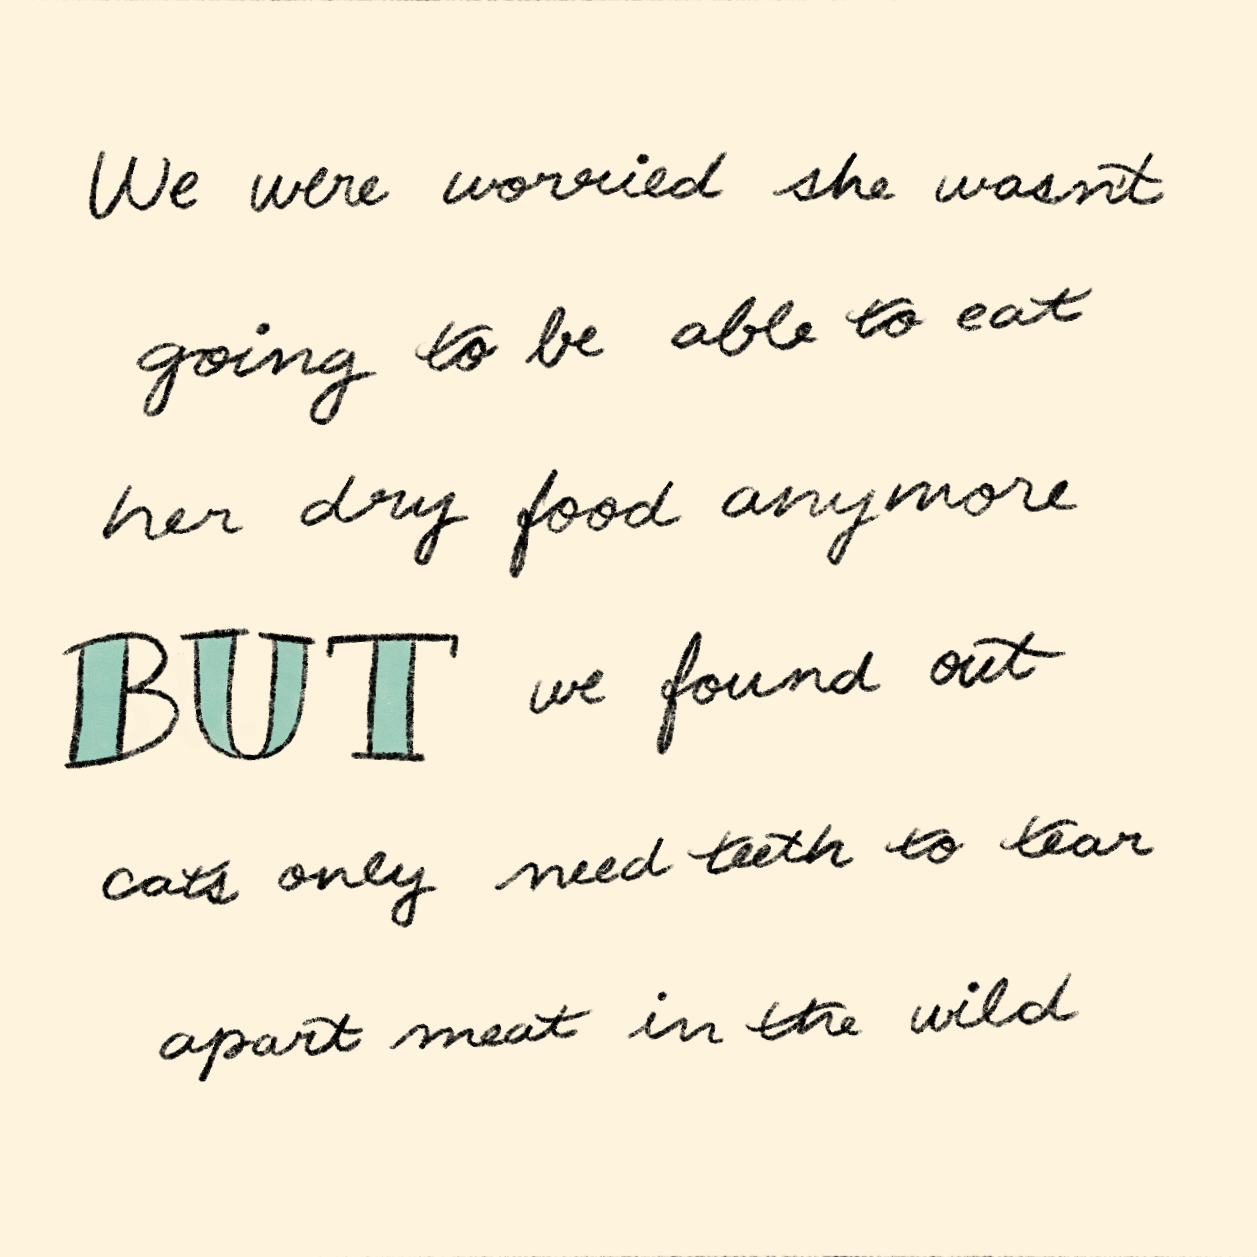 We were worried she wasn't
going to be able to eat
her dry food anymore
BUT we found out
cats only need teeth to tear
apart meat in the wild